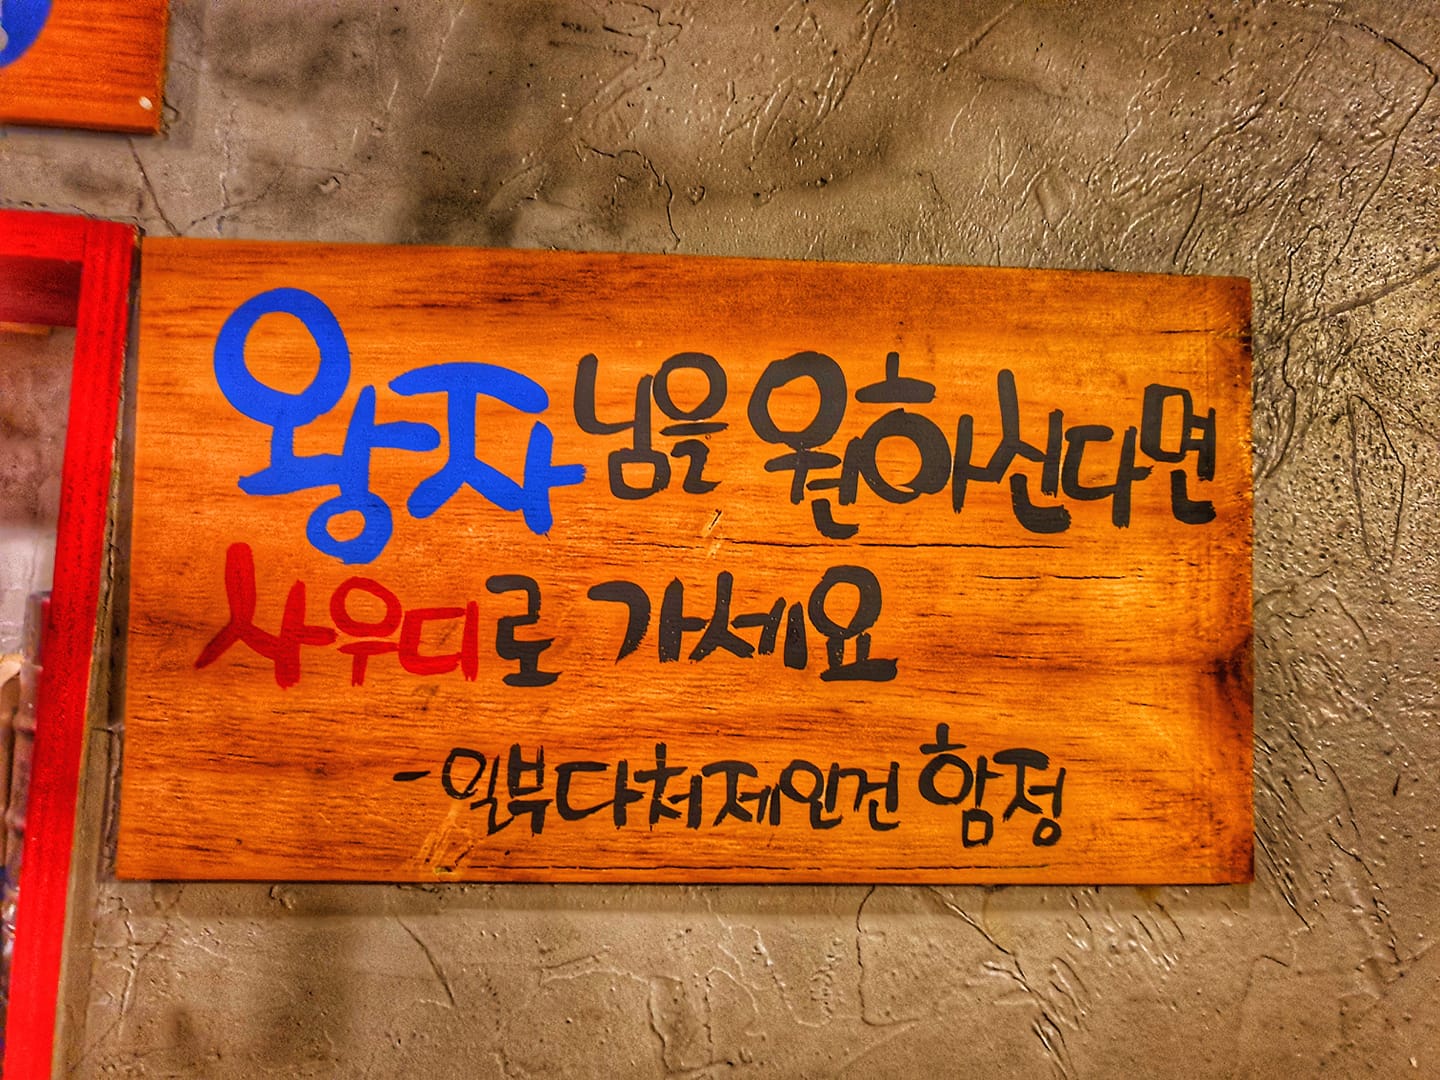 왕자님을 원하신다면
사우디로 가세요
-일부다처제인건 함정